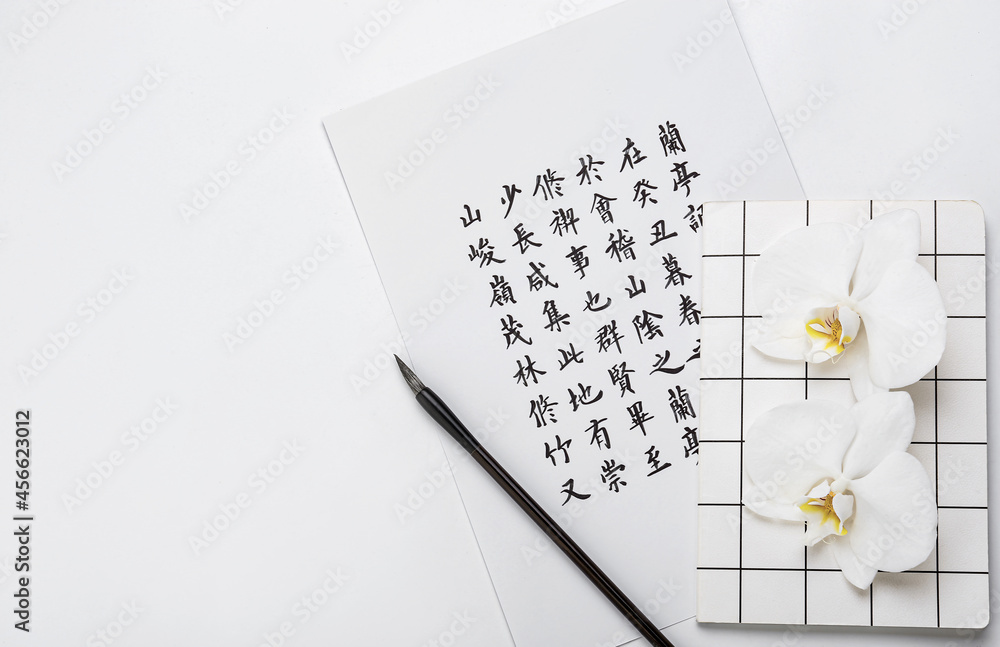 蘭亭記
在癸丑暮春之
於會稽山陰之蘭亭
修禊事也群賢畢至
少長咸集此地有崇
山峻嶺茂林修竹又
Adobe Stock | #456623012